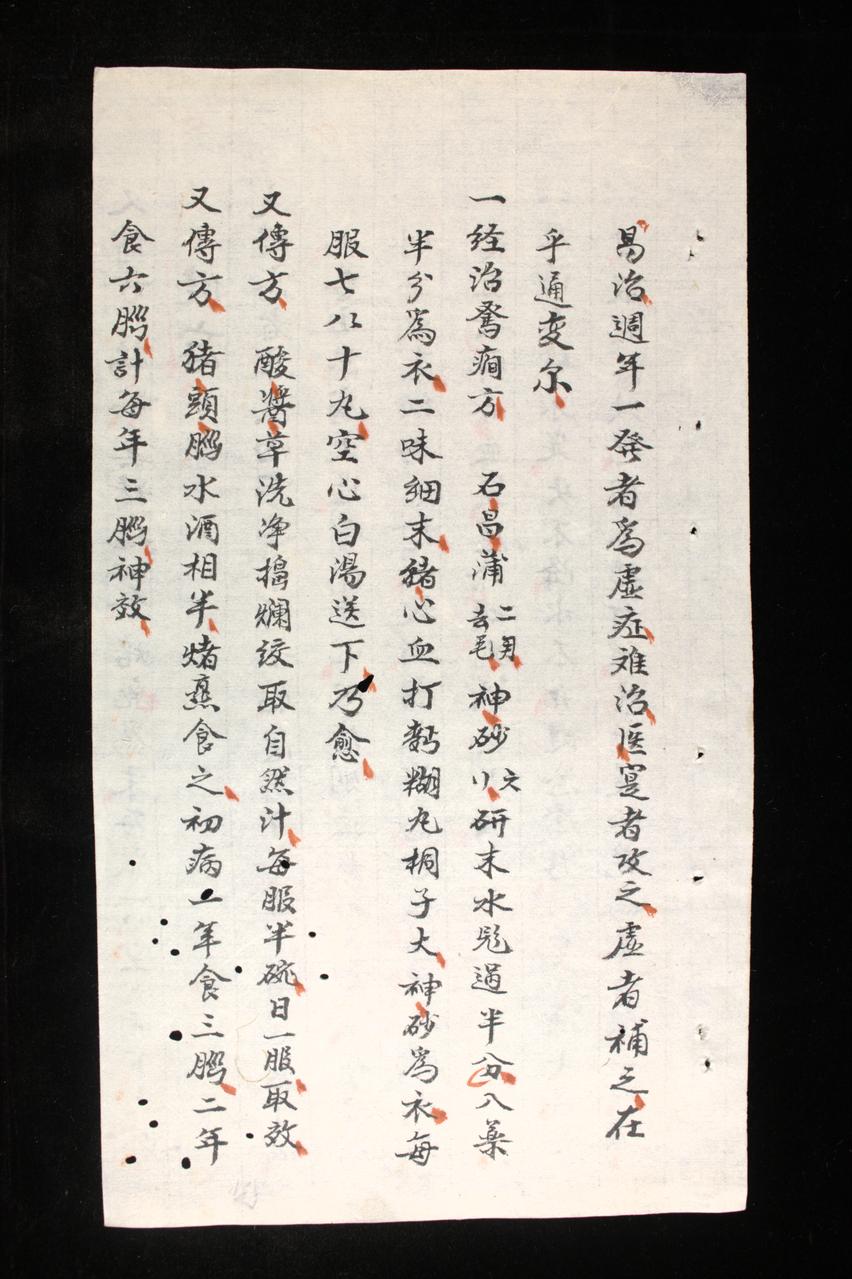 易治週年一發者爲虛症难治医寔者攻之虛者補之在
乎通变尔
一经治驚癎方 石昌蒲二両去毛神砂刂文研末水飛過半分入藥
半分爲衣二味細末猪心血打麪糊丸桐子大神砂爲衣每
服七八十丸空心白湯送下乃愈
又傳方 酸醬草洗净搗爛绞取自然汁每服半碗日一服取效
又傳方 猪頭腦水酒相半煮熟食之初病一年食三腦二年
食六腦計每年三腦神效